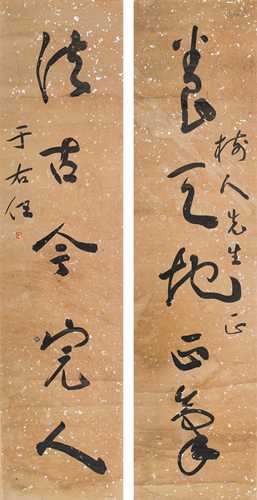 養天地正氣
樹人先生正
法古今完人
于右任